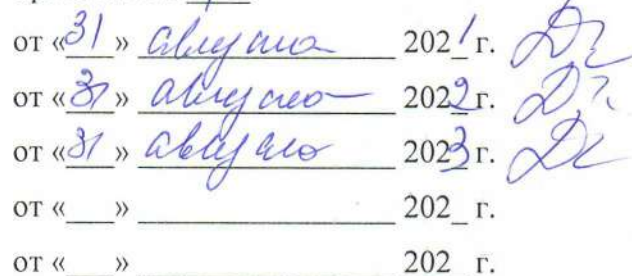 от «31» августа 2021 г.
от «31» августа 2022 г.
от «31» августа 2023 г.
от «___» ______________ 202_ г.
от «___» ______________ 202_ г.